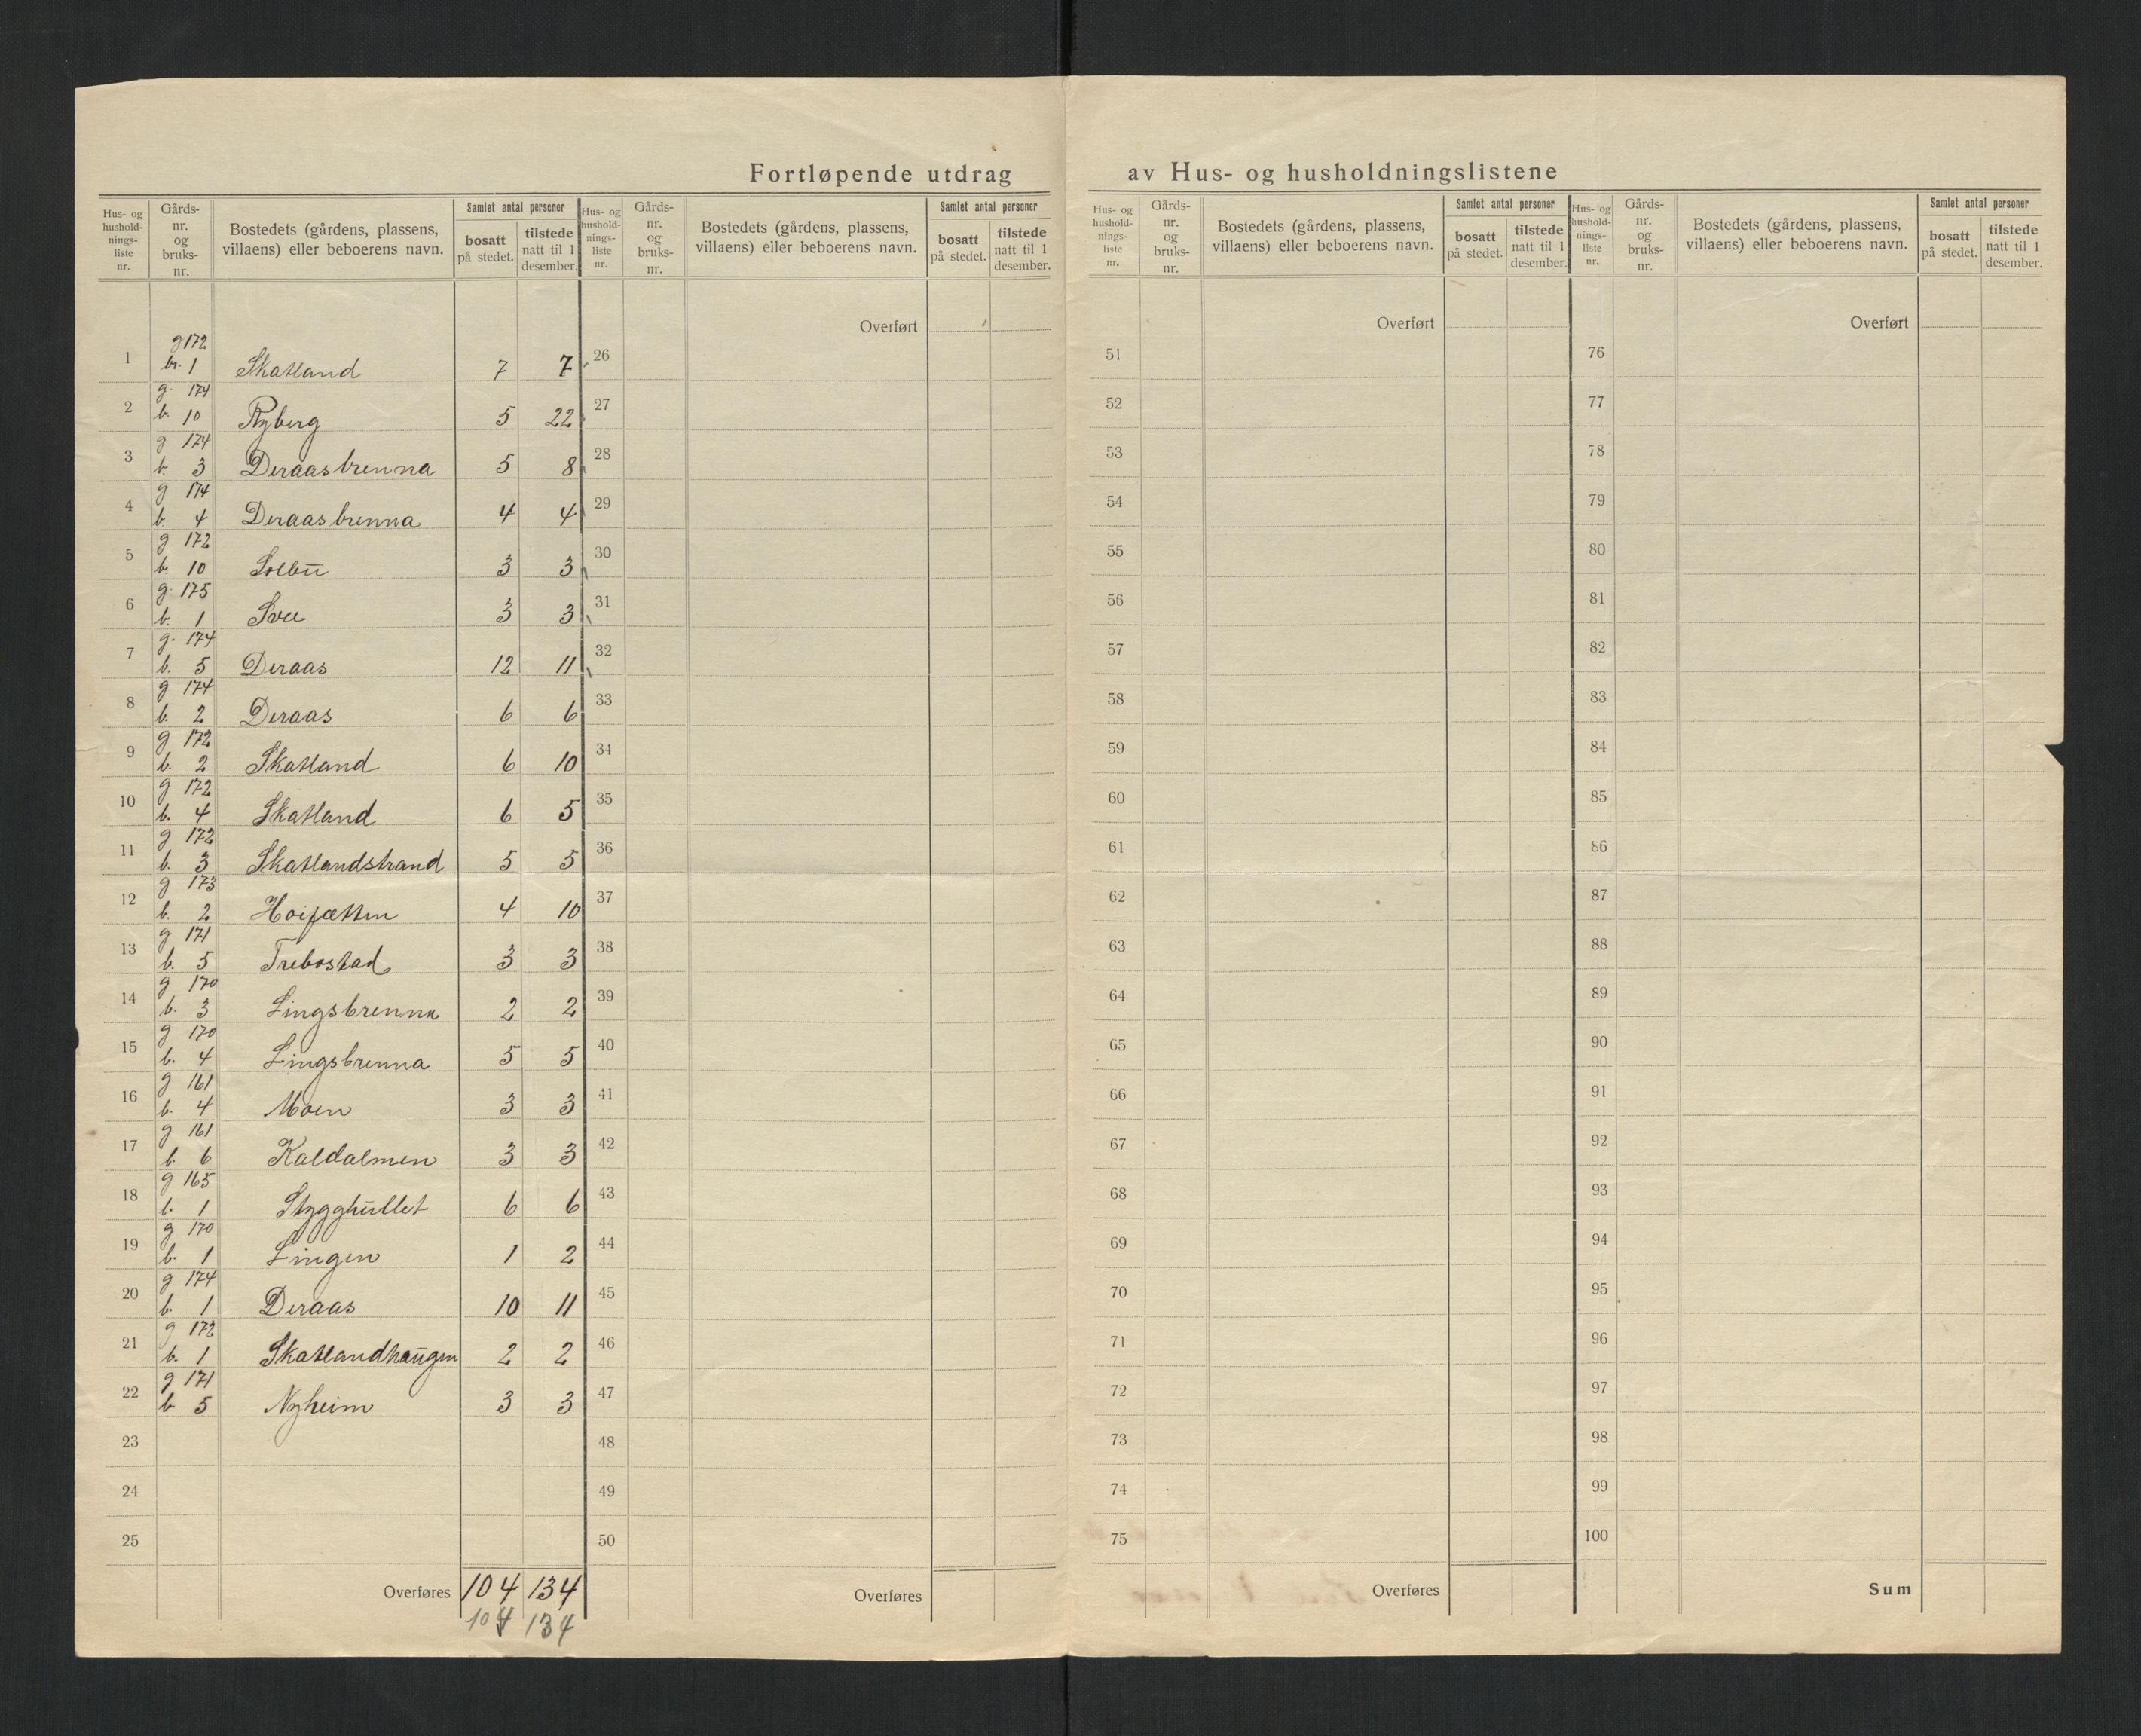 Fortløpende utdrag av Hus- og husholdningslistene
Hus- og hushold-nings-liste nr. Gårds-nr. og bruks-nr. Bostedets (gårdens, plassens, villaens) eller beboerens navn. Samlet antal personer bosatt på stedet. tilstede natt til 1 desember.
1 g 172 br. 1 Skatland 7 7
2 g. 174 b. 10 Ryberg 5 22
3 g 174 b. 3 Deraasbrenna 5 8
4 g 174 b. 4 Deraasbrenna 4 4
5 g 172 b. 10 Solbu 3 3
6 g. 175 b. 1 3 3
7 g. 174 b. 5 Deraas 12 11
8 g 174 b. 2 Deraas 6 6
9 g 172 b. 2 Skatland 6 10
10 g 172 b. 4 Skatland 6 5
11 g 172 b. 3 Skatlandstrand 5 5
12 g 173 b. 2 4 10
13 g 171 b. 5 Trebostad 3 3
14 g 170 b. 3 Lingsbrenna 2 2
15 g 170 b. 4 Lingsbrenna 5 5
16 g 161 b. 4 Moen 3 3
17 g 161 b. 6 Kaldalmen 3 3
18 g 165 b. 1 Stygghullet 6 6
19 g 170 b. 1 Lingen 1 2
20 g 174 b. 1 Deraas 10 11
21 g 172 b. 1 Skatlandhaugen 2 2
22 g 171 b. 5 Nyheim 3 3
23
24
25
Overføres 104 134
104 134
Hus- og hushold-nings-liste nr. Gårds-nr. og bruks-nr. Bostedets (gårdens, plassens, villaens) eller beboerens navn. Samlet antal personer bosatt på stedet. tilstede natt til 1 desember.
Overført
26
27
28
29
30
31
32
33
34
35
36
37
38
39
40
41
42
43
44
45
46
47
48
49
50
Overføres
Hus- og hushold-nings-liste nr. Gårds-nr. og bruks-nr. Bostedets (gårdens, plassens, villaens) eller beboerens navn. Samlet antal personer bosatt på stedet. tilstede natt til 1 desember.
Overført
51
52
53
54
55
56
57
58
59
60
61
62
63
64
65
66
67
68
69
70
71
72
73
74
75
Overføres
Hus- og hushold-nings-liste nr. Gårds-nr. og bruks-nr. Bostedets (gårdens, plassens, villaens) eller beboerens navn. Samlet antal personer bosatt på stedet. tilstede natt til 1 desember.
Overført
76
77
78
79
80
81
82
83
84
85
86
87
88
89
90
91
92
93
94
95
96
97
98
99
100
Sum